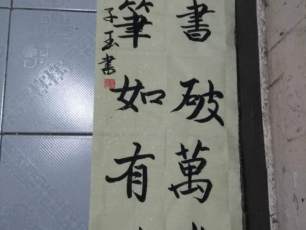 書破萬
筆如有
子玉書